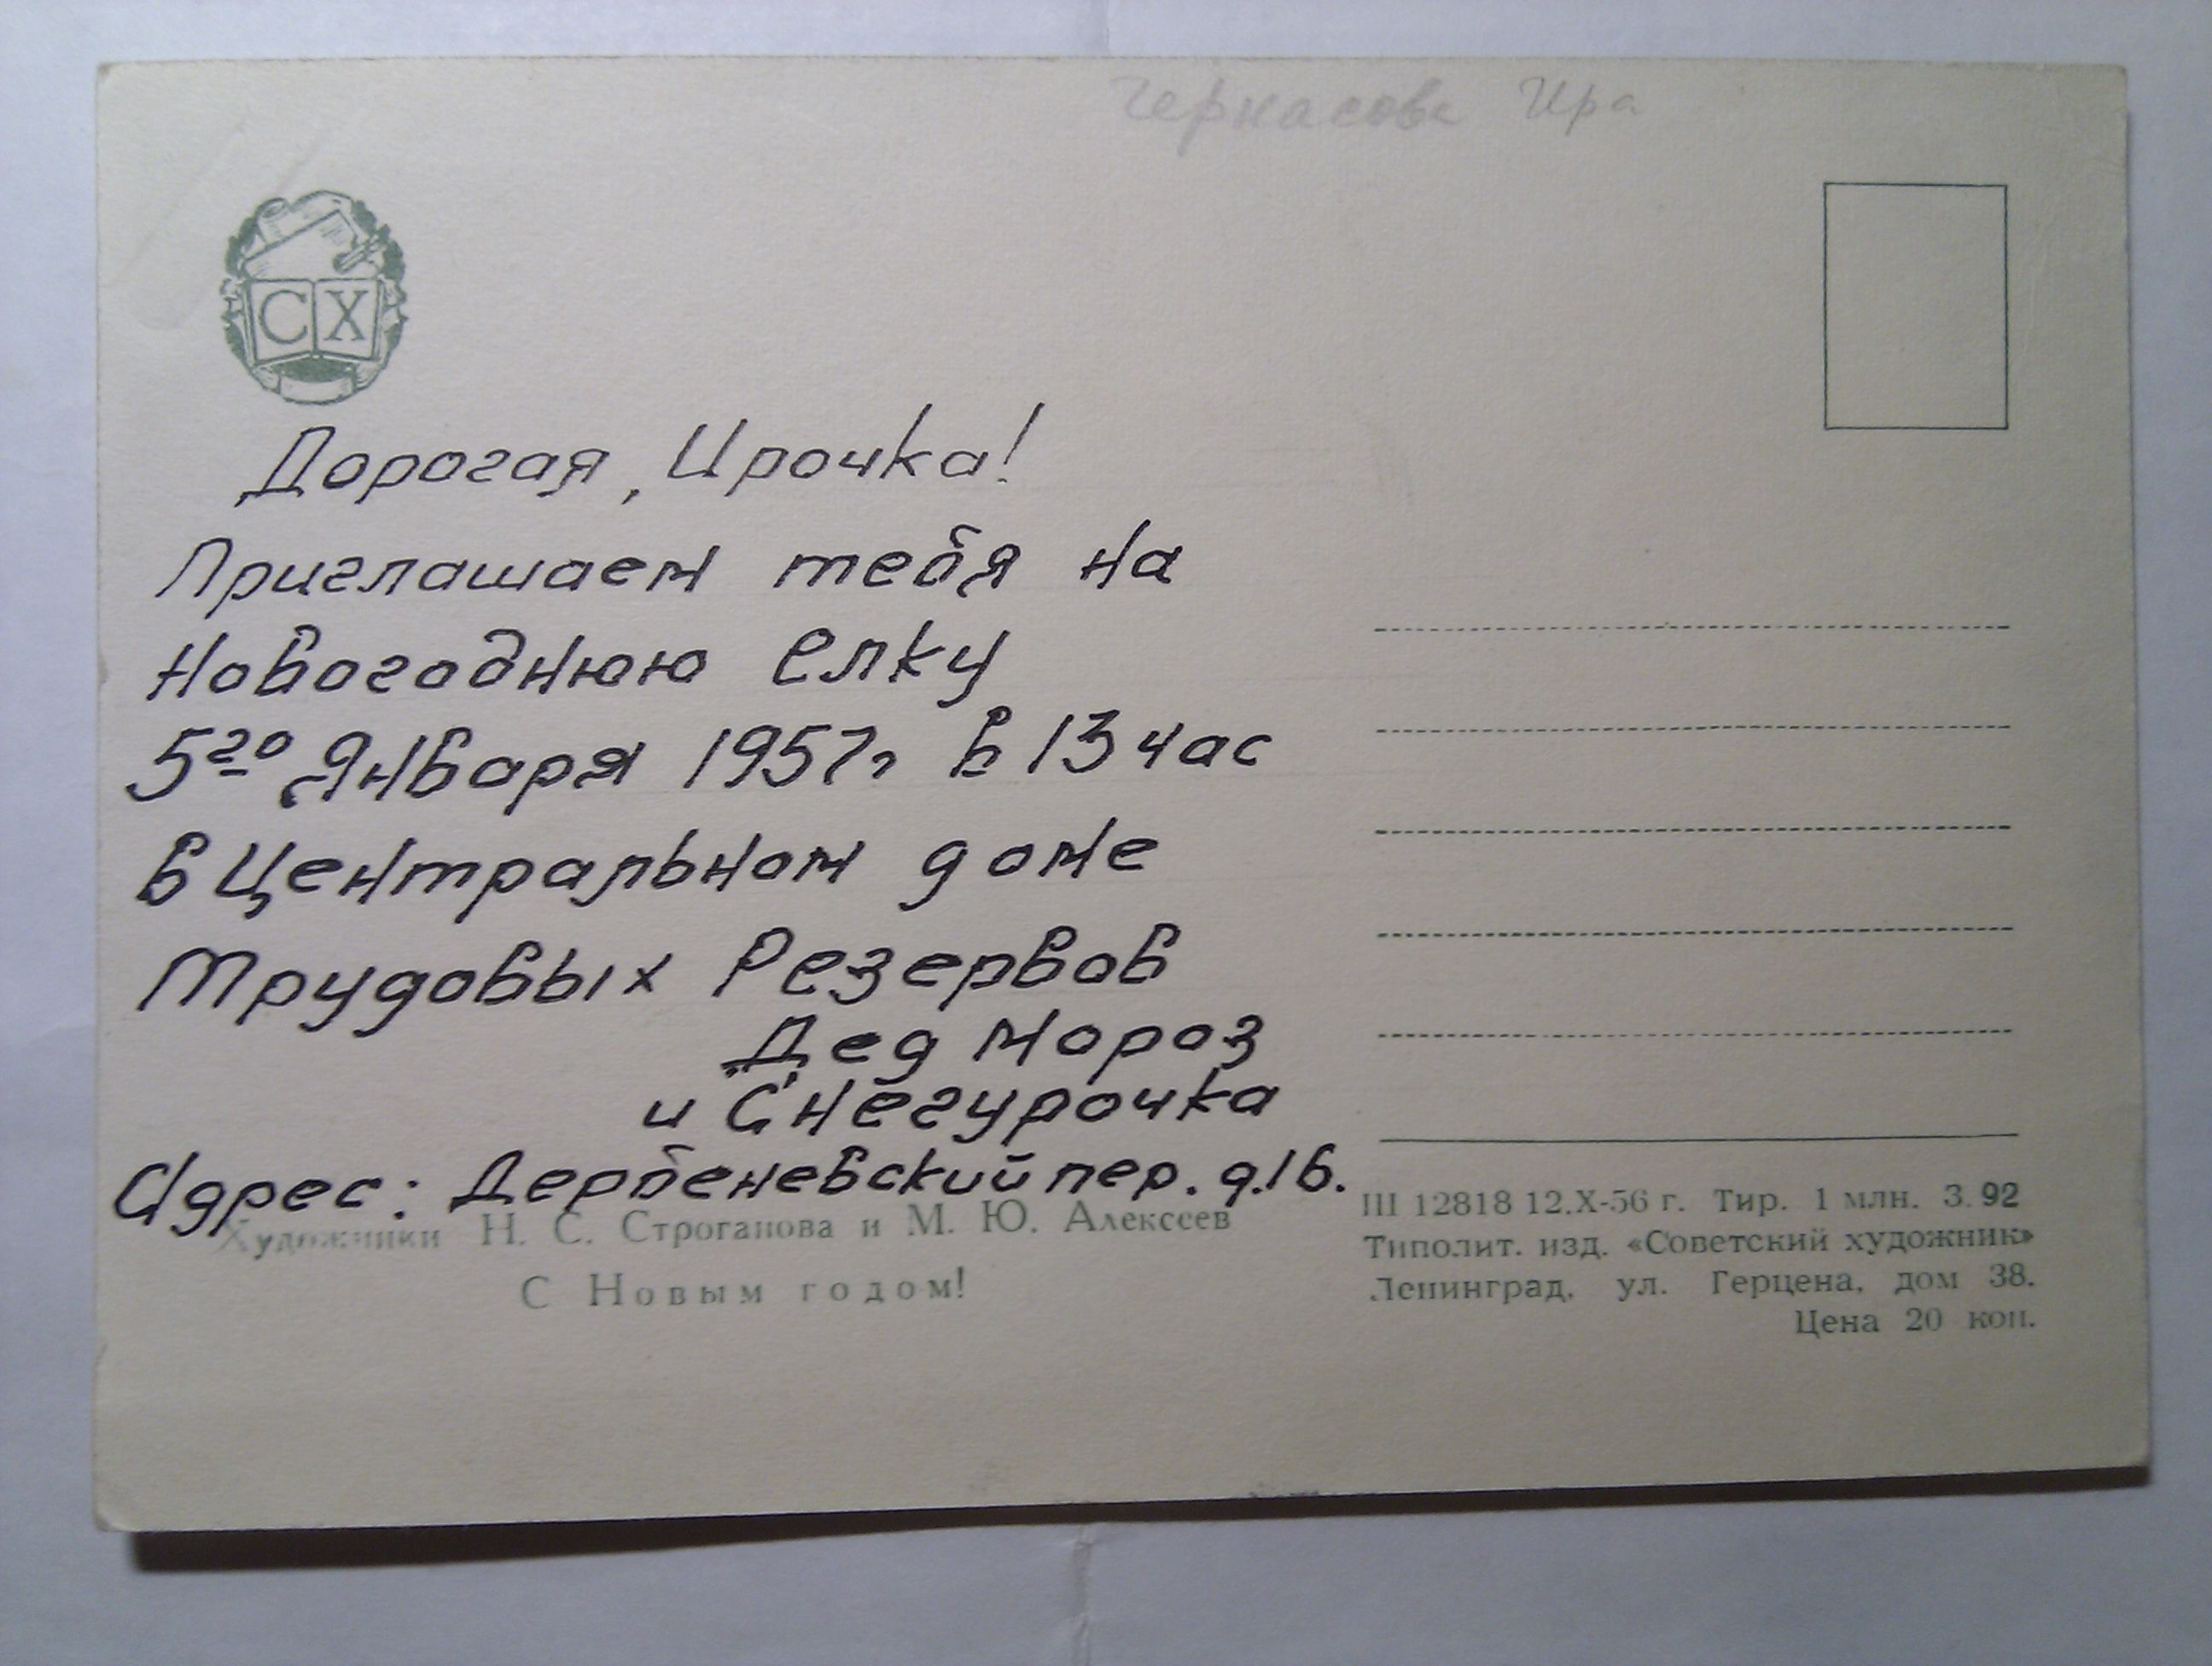 Чернасова Ира
СХ
Дорогая, Ирочка!
Приглашаем тебя на
Новогоднюю елку
5го Января 1957г в 13 час
в Центральном доме
Трудовых Резервов
Дед Мороз
и Снегурочка
Адрес: Дербеневский пер. д.16.
Художники Н. С. Строганова и М. Ю. Алексеев
С Новым годом!
Ш 12818 12.X-56 г. Тир. 1 млн. З. 92
Типолит. изд. «Советский художник»
Ленинград, ул. Герцена, дом 38.
Цена 20 коп.